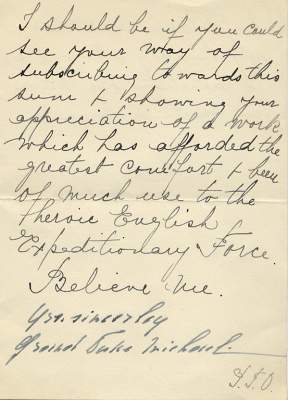 I should be if you could
see your way of
subscribing towards this
sum & showing your
appreciation of a work
which has afforded the
greatest comfort & been
of much use to the
heroic English
Expeditionary Force.
Believe me.
Yrs. sincerley
Grand Duke Michael.